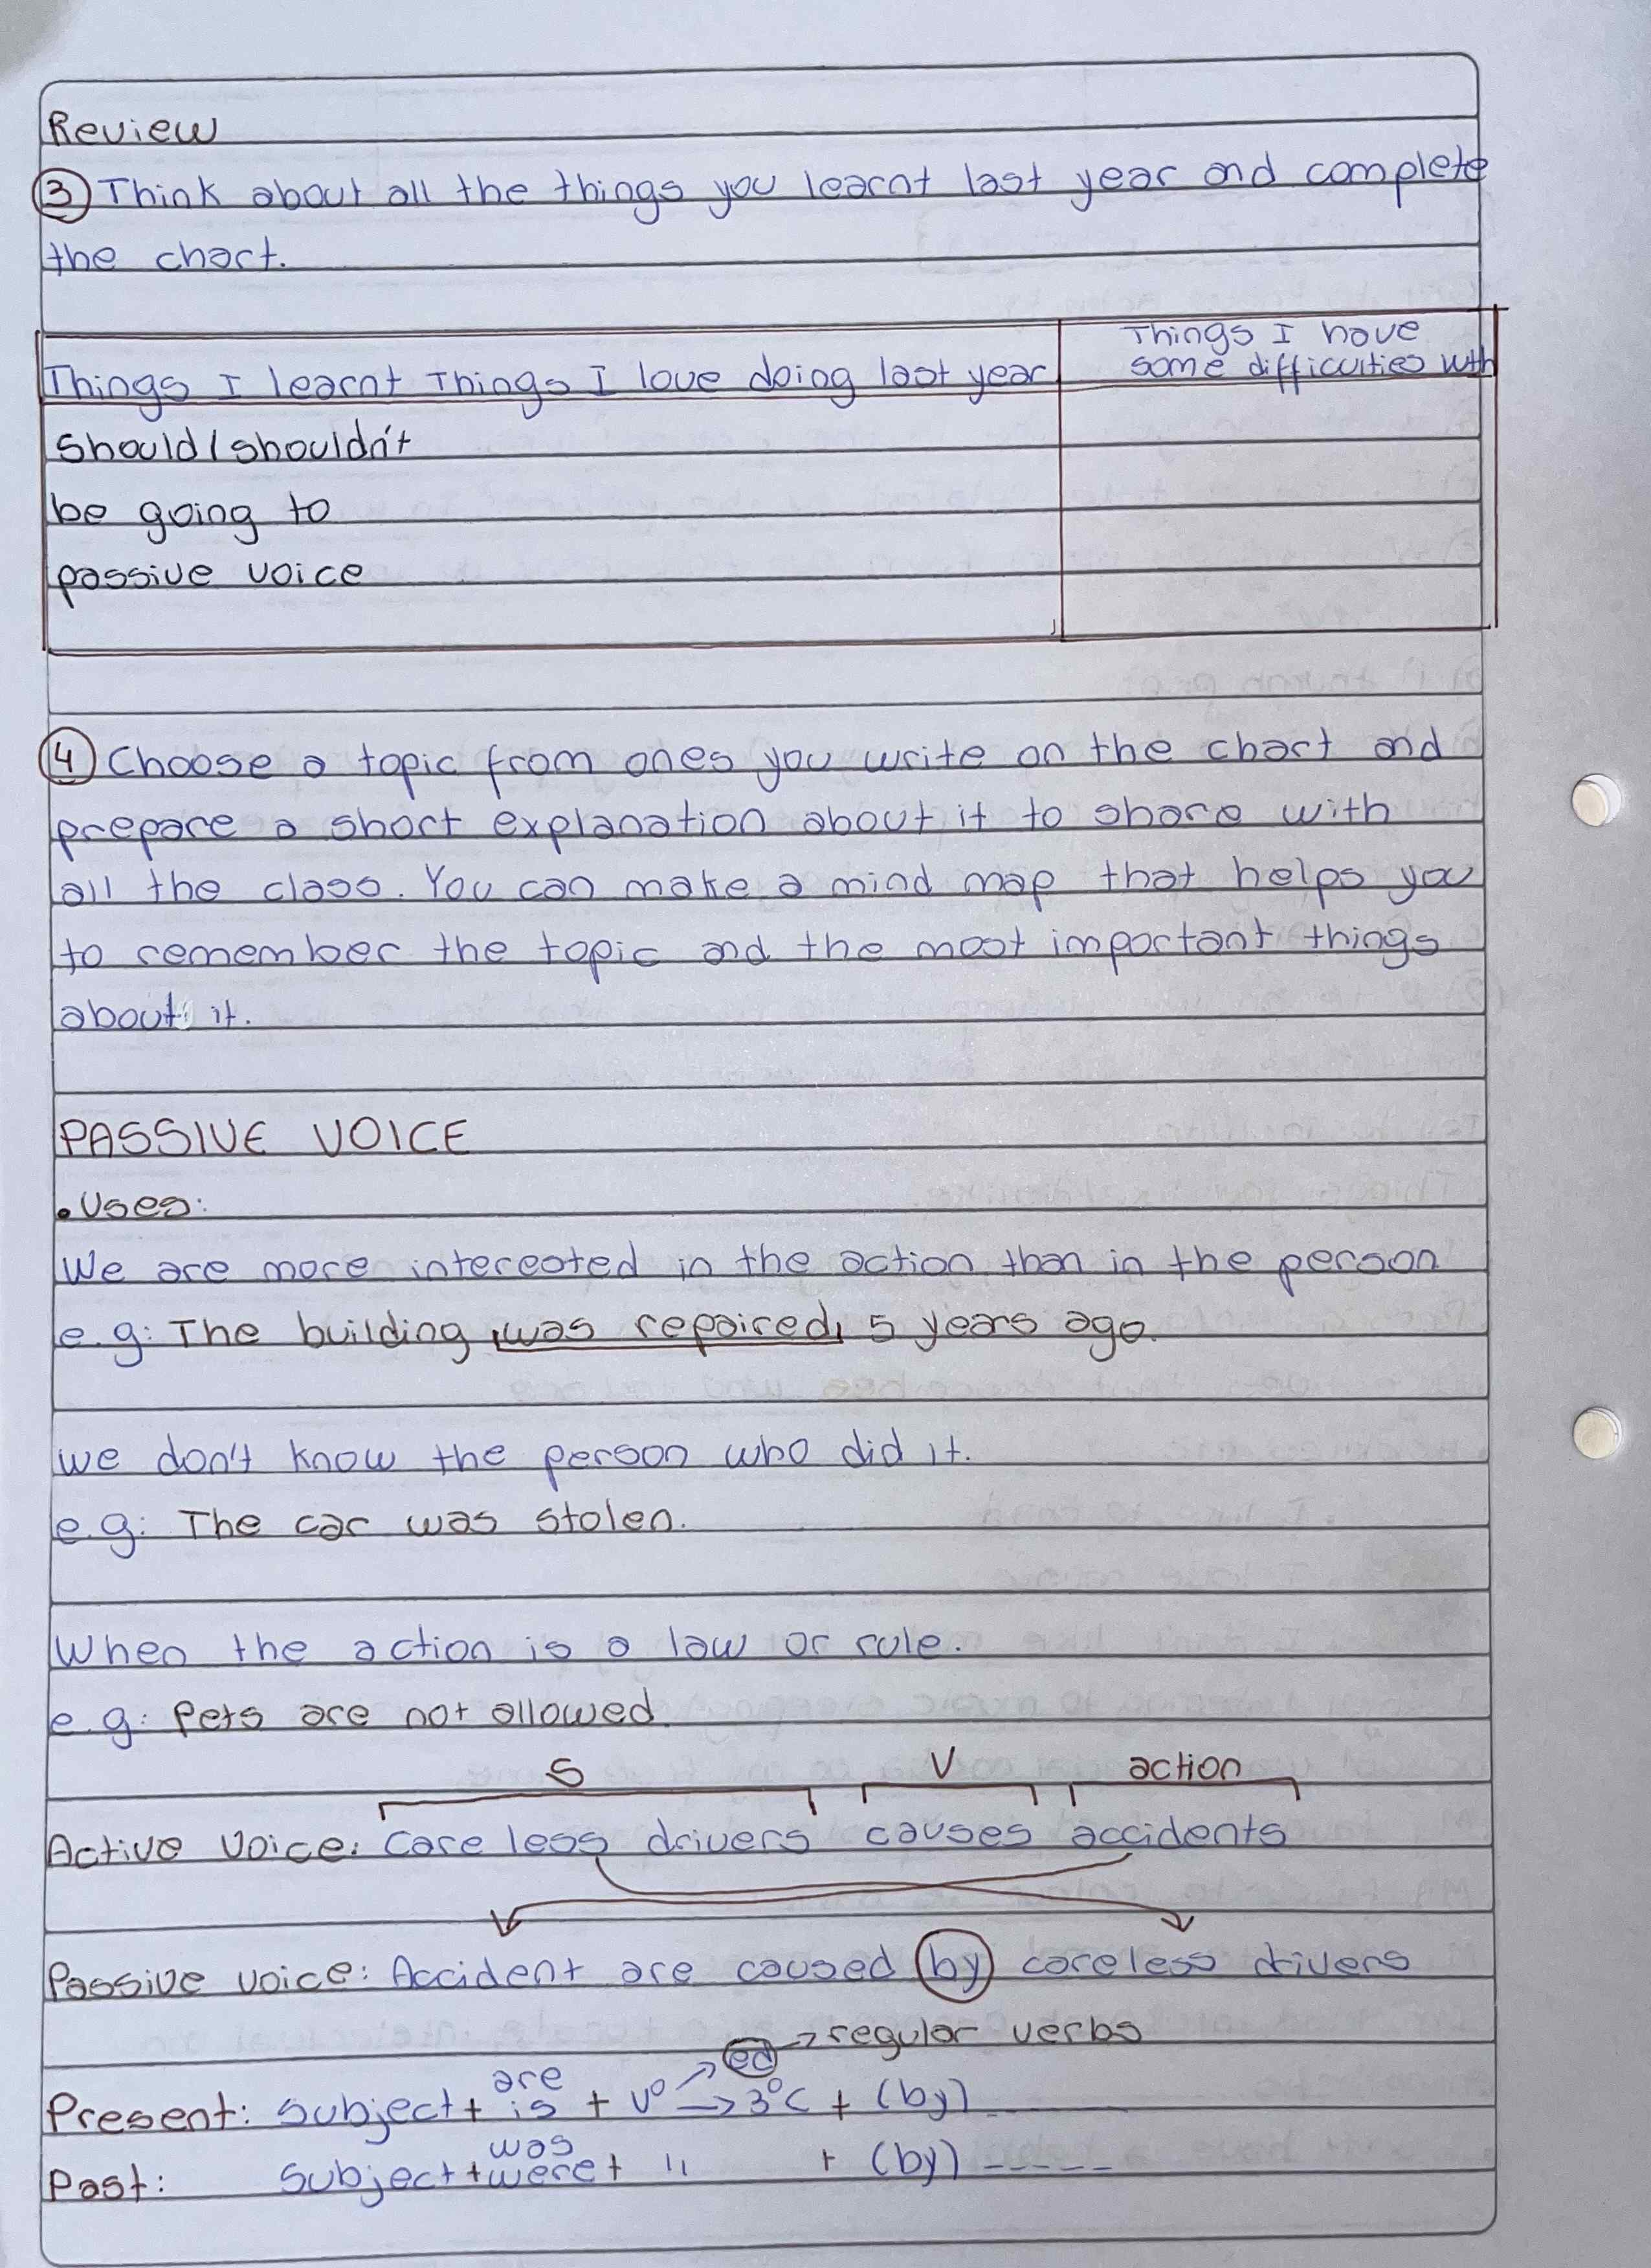 Review
③ Think about all the things you learnt last year and complete
the chart.
Things I have
Things I learnt Things I love doing last year some difficulties with
Should/shouldn't
be going to
passive voice
④ Choose a topic from ones you write on the chart and
prepare a short explanation about it to share with
all the class. You can make a mind map that helps you
to remember the topic and the most important things
about it.
PASSIVE VOICE
• Uses:
We are more interested in the action, than in the person
e.g: The building was repaired 5 years ago.
we don't know the person who did it.
e.g: The car was stolen.
When the action is a law or rule.
e.g: Pets are not allowed.
S V action
Active Voice: Care less drivers causes accidents
Passive voice: Accident are caused by careless drivers
ed → regular verbs
are
Present: subject + is + v° → 3°C + (by)
was
Past: Subject + were + " + (by) -----